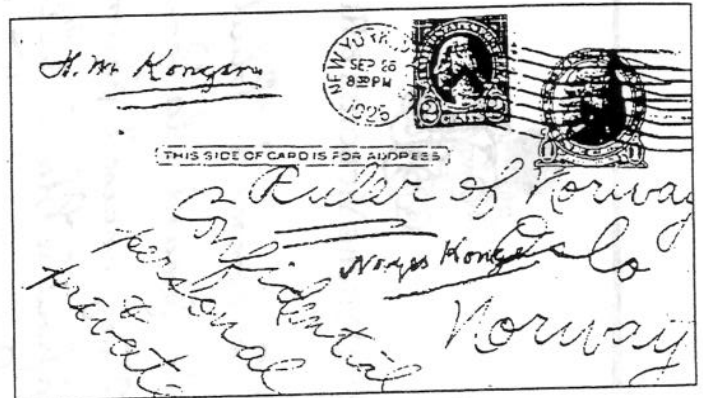 H. M. Kongen
NEW YORK
SEP 26
8 30 PM
1925
2 CENTS 2
1 1
THIS SIDE OF CARD IS FOR ADDRESS
Ruler of Norway
Norges Konge
Oslo
Norway
Confidential
personal
&
private